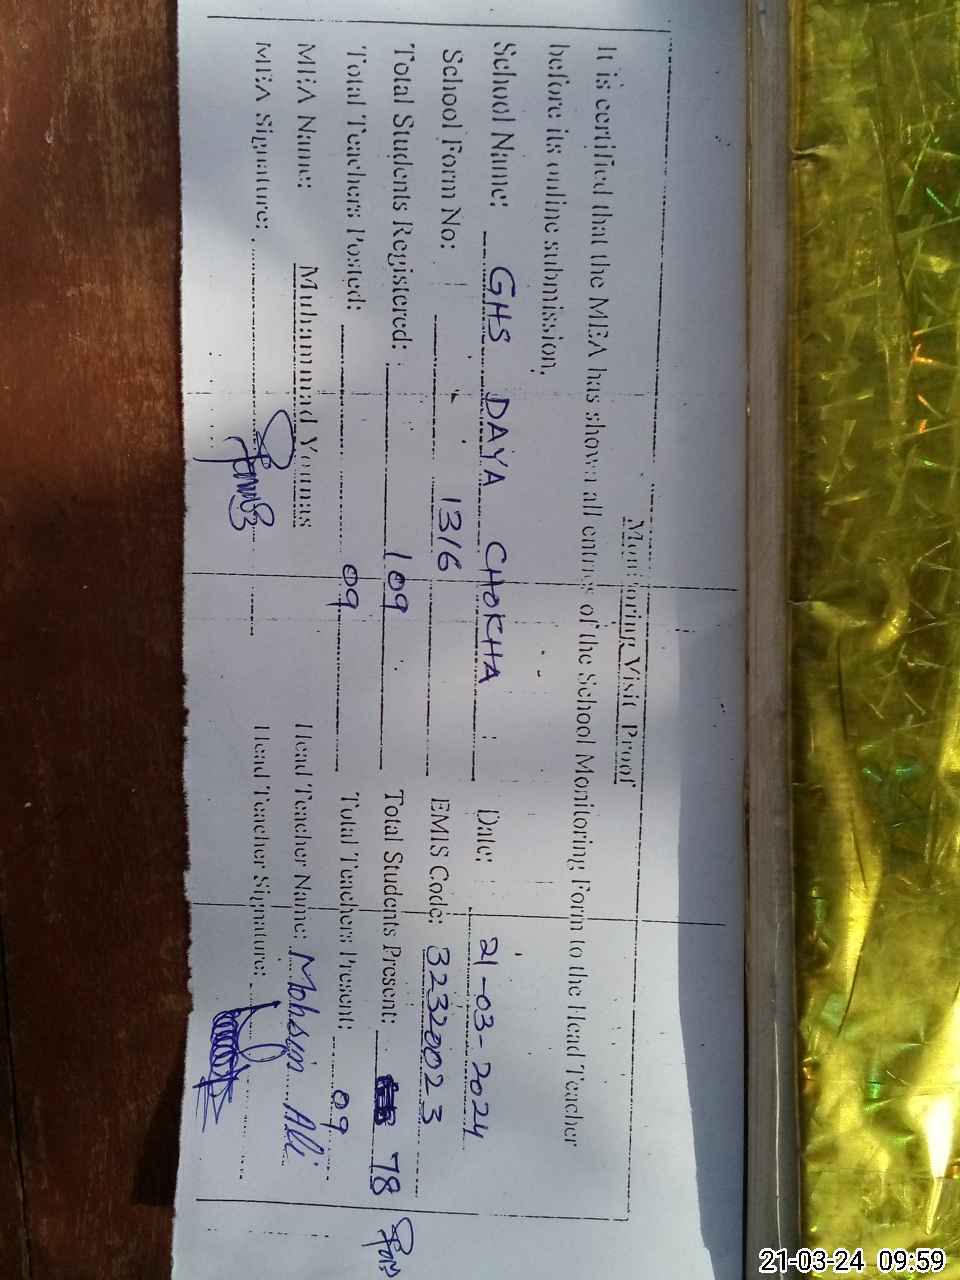 Monitoring Visit Proof
It is certified that the MEA has shown all entries of the School Monitoring Form to the Head Teacher
before its online submission.
School Name: GHS DAYA CHOKHA Date: 21-03-2024
School Form No: 1316 EMIS Code: 32320023
Total Students Registered: 109 Total Students Present: 78
Total Teachers Posted: 09 Total Teachers Present: 09
MEA Name: Muhammad Younas Head Teacher Name: Mohsin Ali
MEA Signature: Head Teacher Signature:
21-03-24 09:59